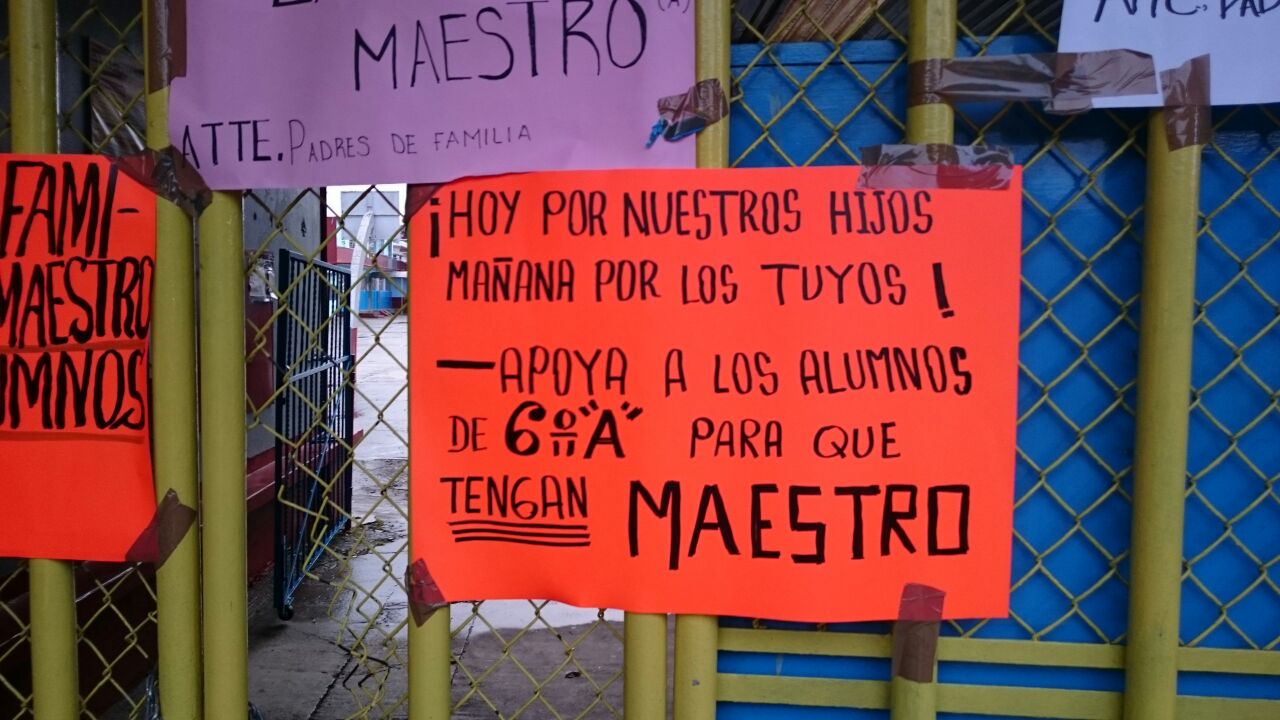 MAESTRO
ATTE. PADRES DE FAMILIA
FAMI-
MAESTRO
UMNOS
¡HOY POR NUESTROS HIJOS
MAÑANA POR LOS TUYOS!
—APOYA A LOS ALUMNOS
DE 6º "A" PARA QUE
TENGAN MAESTRO